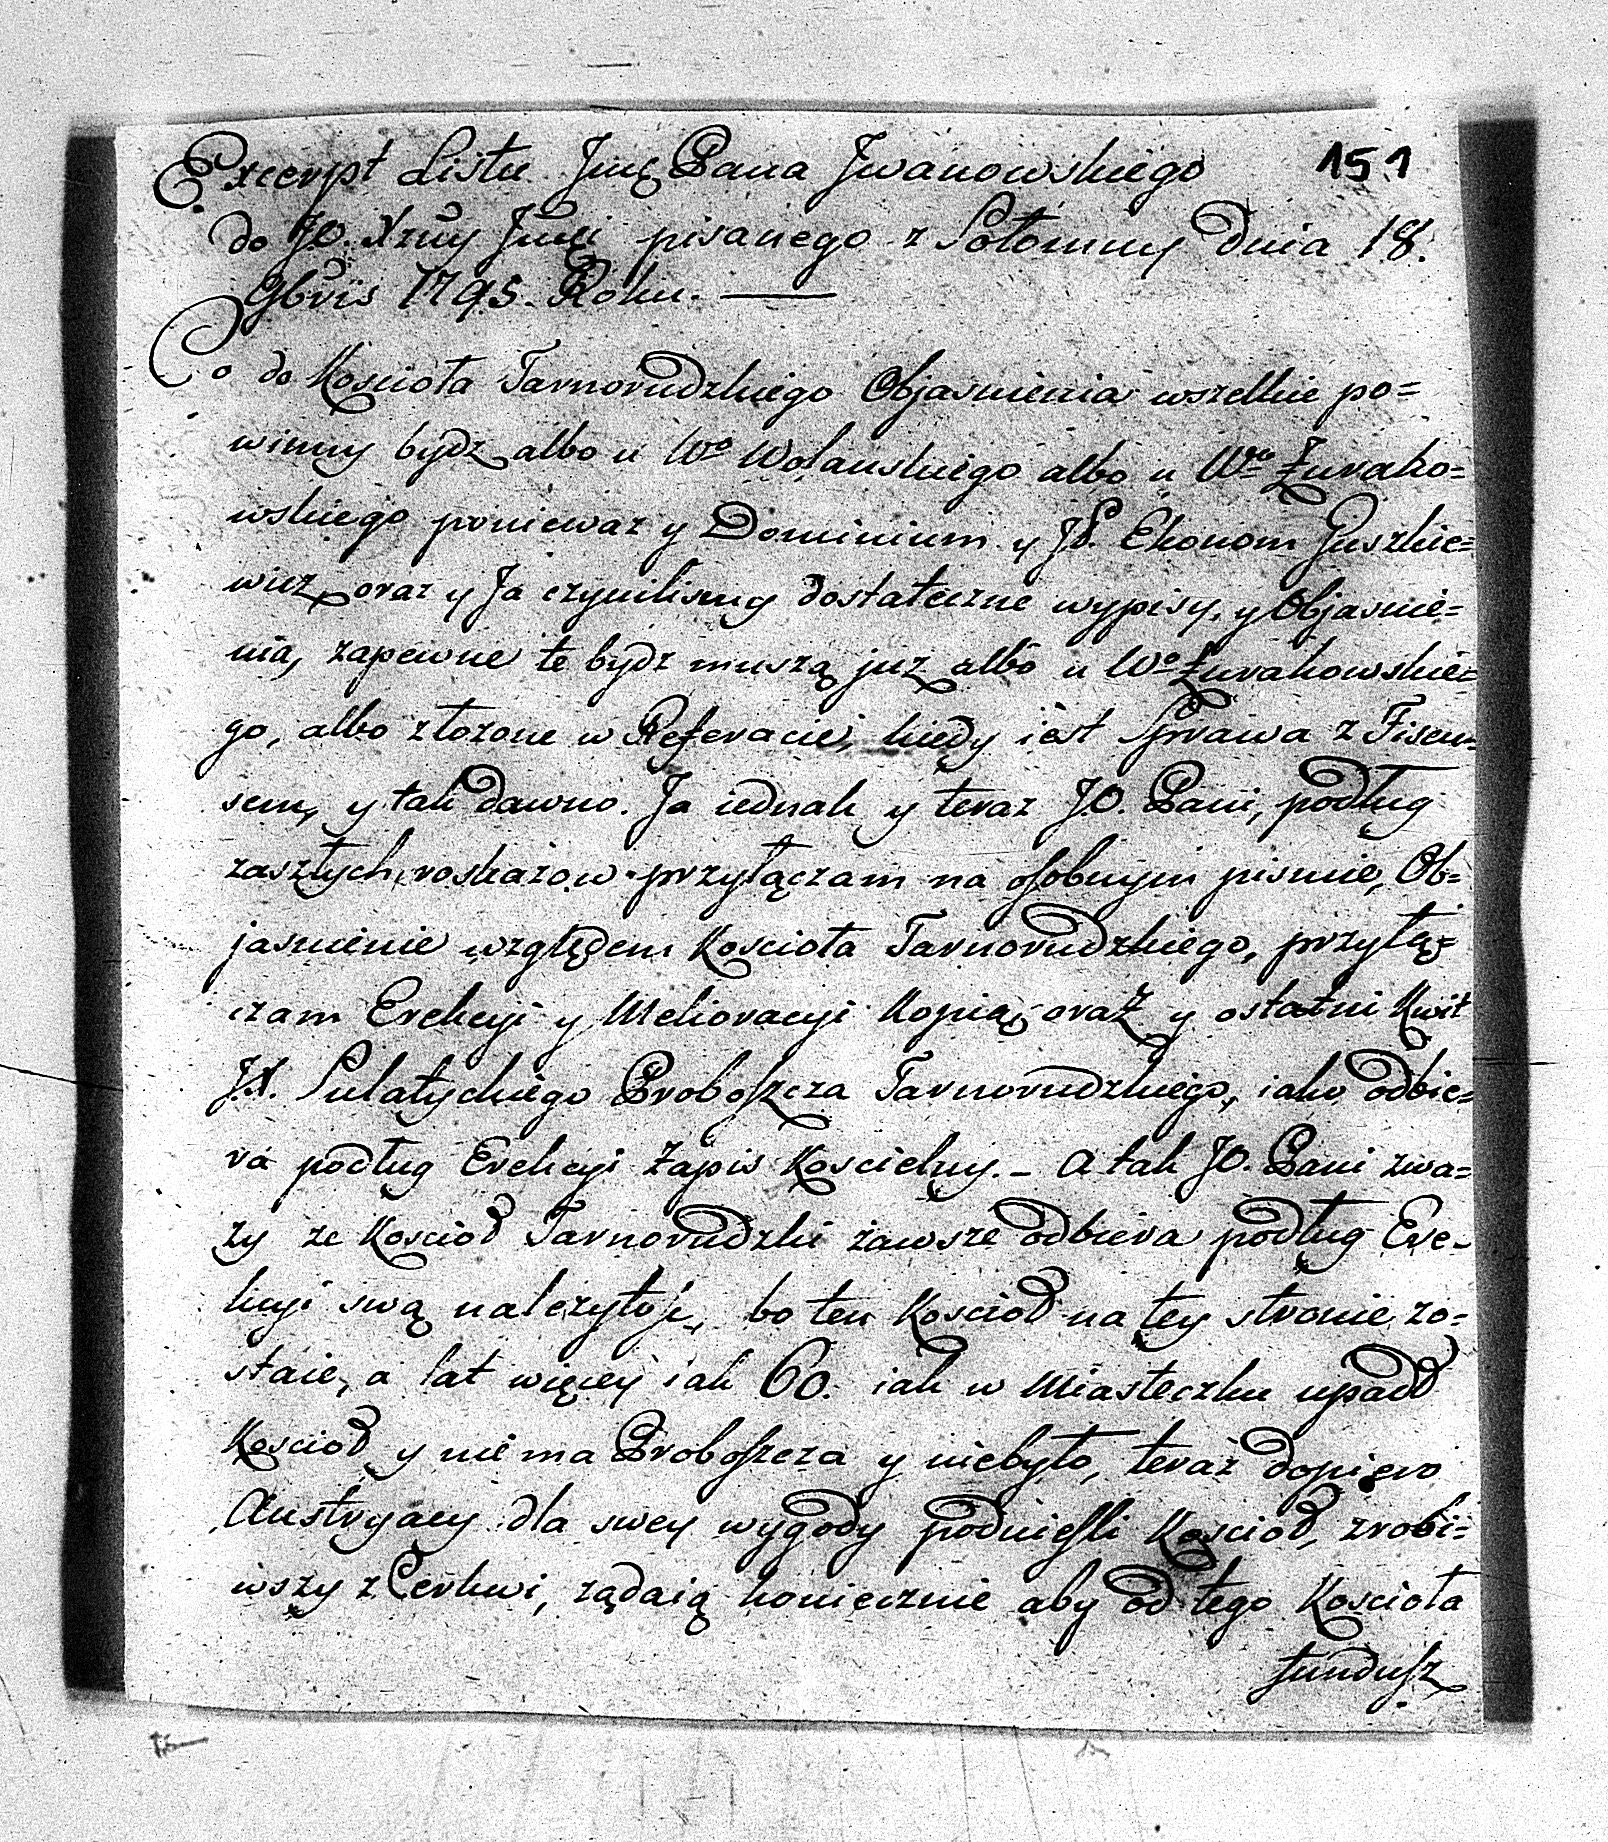 151
Excerpt Listu Jmę Pana Jwanowskiego
do JO. Xzny Jmci pisanego z Sołomny Dnia 18.
9bris 1795. Roku.
Co do Koscioła Tarnorudzkiego Objasnienia wszelkie po=
winny bydz albo u Wo Wolanskiego albo u Wo Żurako=
wskiego poniewaz y Dominium y JP. Ekonom Juszkie=
wicz oraz y Ja czynilismy dostateczne wypisy, y Objasnie=
nia, zapewne te bydz muszą juz albo u Wo Żurakowskie=
go, albo złozone w Referacie, kiedy iest Sprawa z Fiscu=
sem, y tak dawno. Ja iednak y teraz J.O. Pani, podług
zaszłych roskazow przyłączam na osobnym pismie, Ob=
jasnienie względem Kosciola Tarnorudzkiego, przyłą=
czam Erekcyi y Melioracyi Kopią, oraz y ostatni Kwit
J.X. Sulatyckiego Proboszcza Tarnorudzkiego, iako odbie=
ra podług Erekcyi Zapis Koscielny. _ A tak JO. Pani zwa=
zy ze Kosciod Tarnorudzki zawsze odbiera podług Ere=
kcyi swą nalezytosc, bo ten Kosciod na tey stronie zo=
staie, a lat więcey iak 60. iak w Miasteczku upadd
Kosciod y nie ma Proboszcza y niebyło, teraz dopiero
Austryacy dla swey wygody podniesli Kosciod, zrobi=
wszy z Cerkwi, ządaią koniecznie aby od tego Kosciola
fundusz